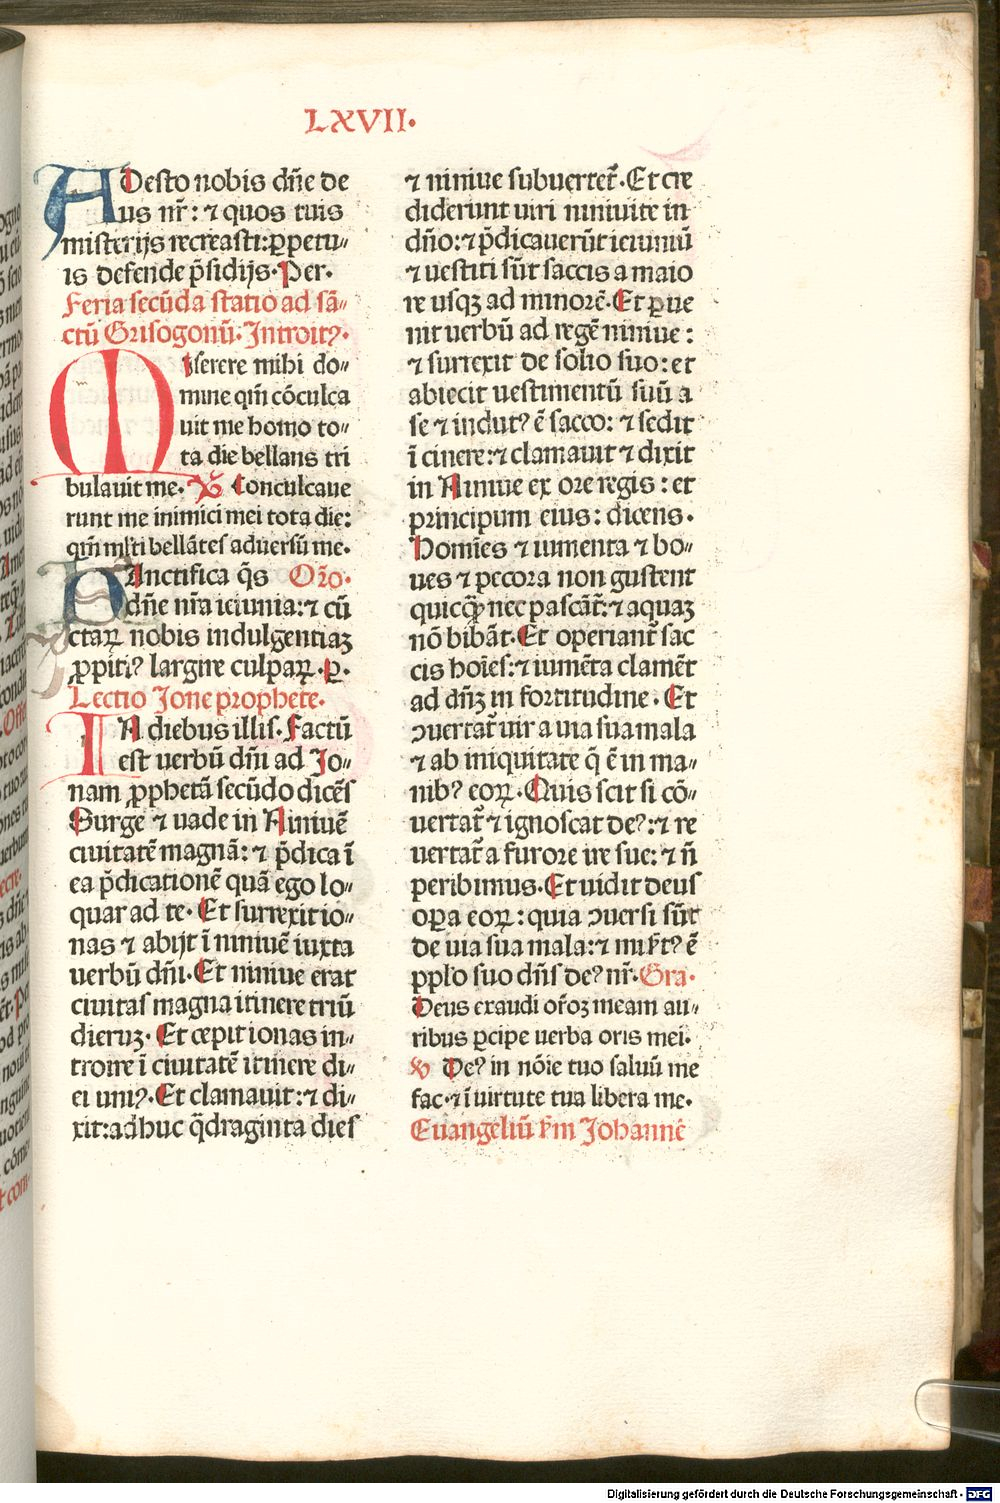 LXVII.
ADesto nobis dñe de
us nr̃: ⁊ quos tuis
misterijs recreasti: ꝑpetu⸗
is defende p̃sidijs. Per.
Feria secũda statio ad sã⸗
ctũ Grisogonũ. Introitꝰ.
MIserere mihi do⸗
mine qm̃ cõculca
uit me homo to⸗
ta die bellans tri
bulauit me. Ps̃ Conculcaue
runt me inimici mei tota die:
qm̃ ml̃ti bellãtes aduersũ me.
SAnctifica q̃s Or̃o.
dñe nr̃a ieiunia: ⁊ cũ
ctaꝝ nobis indulgentiaꝫ
ꝓpitiꝰ largire culpaꝝ. ꝑ.
Lectio Ione prophete.
IN diebus illis. Factũ
est verbũ dñi ad Jo⸗
nam ꝓphetã secũdo dicẽs
Surge ⁊ vade in Niniuẽ
ciuitatẽ magnã: ⁊ p̃dica ĩ
ea p̃dicationẽ quã ego lo⸗
quar ad te. Et surrexit io⸗
nas ⁊ abijt ĩ niniuẽ iuxta
verbũ dñi. Et niniue erat
ciuitas magna itinere triũ
dieruꝫ. Et cepit ionas in⸗
troire ĩ ciuitatẽ itinere di⸗
ei uniꝰ. Et clamauit: ⁊ di⸗
xit: adhuc q̃draginta dies
⁊ niniue subuertet̃. Et cre
diderunt viri niniuite in
dño: ⁊ p̃dicauerũt ieiuniũ
⁊ vestiti sũt saccis a maio
re usqꝫ ad minorẽ. Et ꝑue
nit verbũ ad regẽ niniue:
⁊ surrexit de solio suo: et
abiecit vestimentũ suũ a
se ⁊ indutꝰ ẽ sacco: ⁊ sedit
ĩ cinere: ⁊ clamauit ⁊ dixit
in Niniue ex ore regis: et
principum eius: dicens.
Homĩes ⁊ iumenta ⁊ bo⸗
ues ⁊ pecora non gustent
quicq̃ꝫ nec pascãt̃: ⁊ aquaꝫ
nõ bibãt. Et operiant̃ sac
cis hoĩes: ⁊ iumẽta clamẽt
ad dñꝫ in fortitudine. Et
ꝯuertat̃ vir a via sua mala
⁊ ab iniquitate q̃ ẽ in ma⸗
nibꝰ eoꝝ. Quis scit si cõ⸗
uertat̃ ⁊ ignoscat deꝰ: ⁊ re
uertat̃ a furore ire sue: ⁊ ñ
peribimus. Et vidit deus
oꝑa eoꝝ: quia ꝯuersi sũt
de via sua mala: ⁊ mis̃tꝰ ẽ
pplo suo dñs deꝰ nr̃. Gra.
Deus exaudi or̃oꝫ meam au⸗
ribus ꝑcipe verba oris mei.
v̉ Deꝰ in nõie tuo saluũ me
fac. ⁊ ĩ virtute tua libera me.
Euangeliũ s̃m Johannẽ
Digitalisierung gefördert durch die Deutsche Forschungsgemeinschaft - DFG